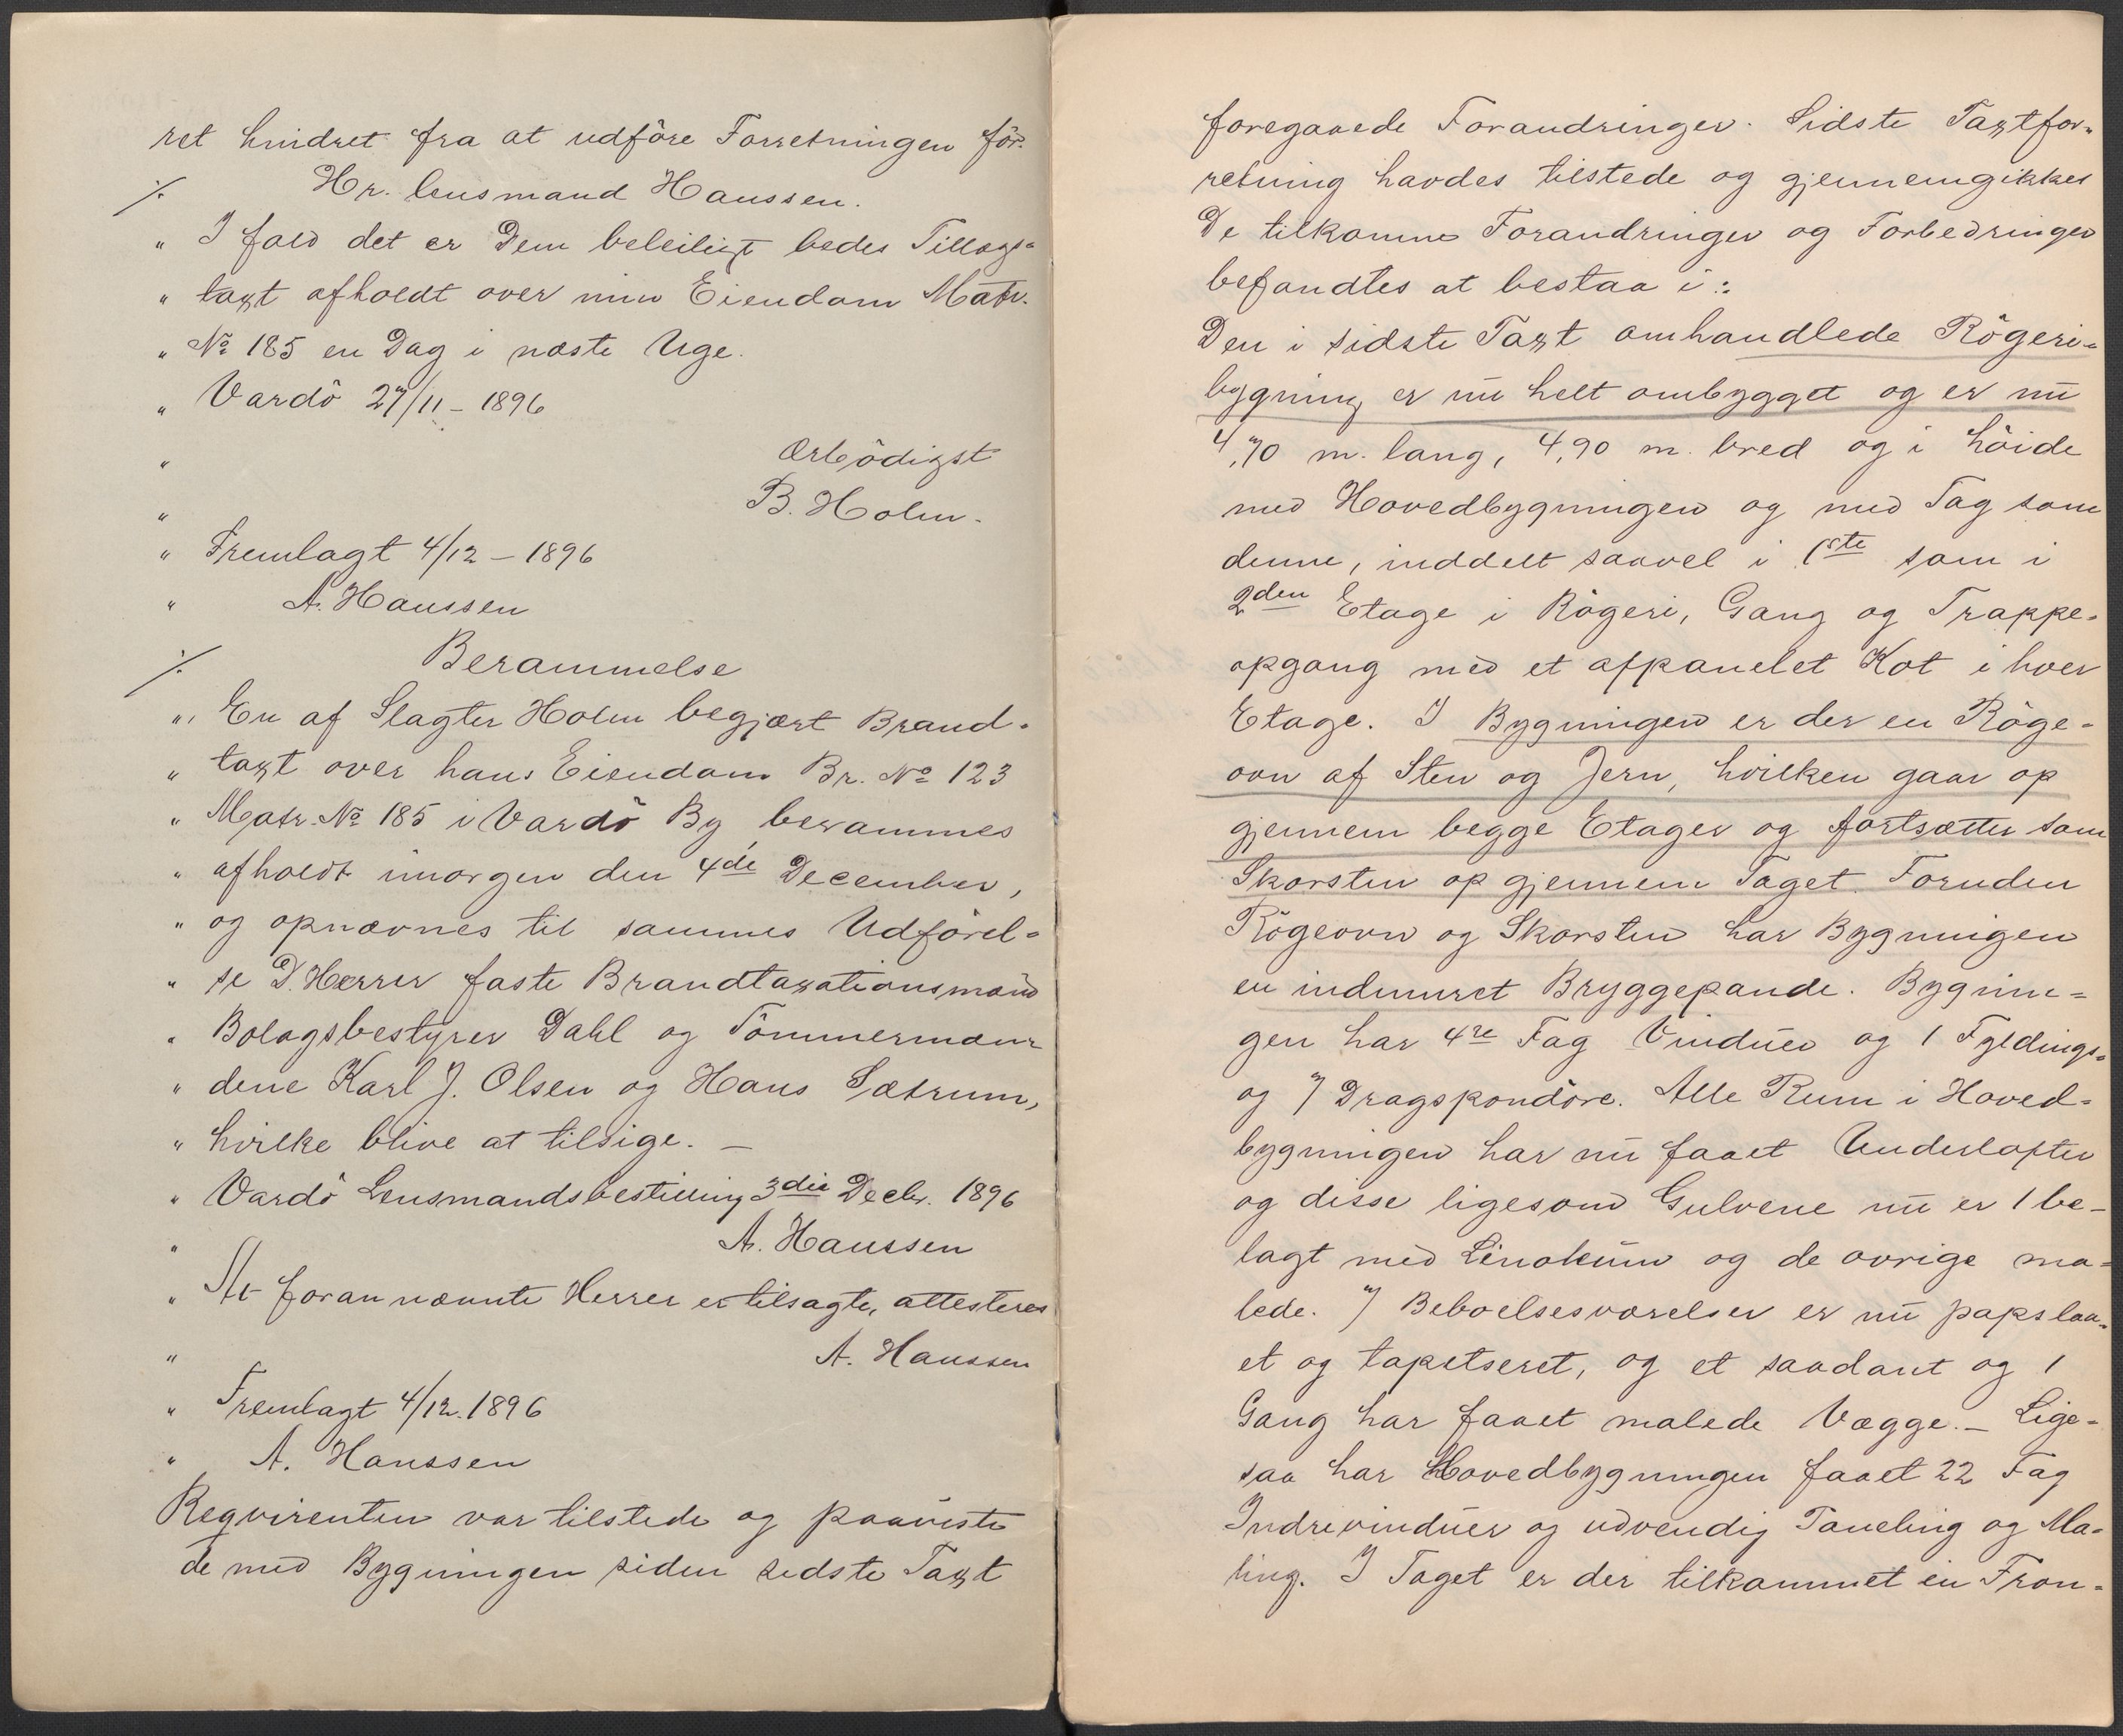 ret hindret fra at udføre Forretningen før.
./. Hr. Lensmand Hanssen.
" I fald det er Dem beleiligt bedes Tillægs=
" taxt afholdt over min Eiendom Matr.
" No 185 en Dag i næste Uge.
" Vardö 27/11 - 1896
" Ærbödigst
" B. Holm.
" Fremlagt 4/12 - 1896
" A. Hanssen
./. Berammelse
" En af Slagter Holm begjært Brand=
" taxt over hans Eiendom Br. No 123
" Matr. No 185 i Vardö By, berammes
" afholdt imorgen den 4de December,
" og opnævnes til sammes Udförel=
" se D. Herrer faste Brandtaxationsmænd
" Bolagsbestyrer Dahl og Tömmermæn=
" dene Karl J. Olsen og Hans Sætrum,
" hvilke blive at tilsige. -
" Vardö Lensmandsbestilling 3die Decbr. 1896
" A. Hanssen
" At forannævnte Herrer er tilsagte, attesteres
" A. Hanssen
" Fremlagt 4/12. 1896
" A. Hanssen
Reqvirenten var tilstede og paaviste
de med Bygningen siden sidste Taxt
foregaaede Forandringer. Sidste Taxtfor=
retning havdes tilstede og gjennemgikkes
De tilkomne Forandringer og Forbedringer
befandtes at bestaa i:
Den i sidste Taxt omhandlede Rögeri=
bygning er nu helt ombygget og er nu
4,70 m. lang, 4,90 m. bred og i höide
med Hovedbygningen og med Tag som
denne, inddelt saavel i 1ste som i
2den Etage i Rögeri, Gang og Trappe=
opgang med et afpanelet Kot i hver
Etage. I Bygningen er der en Röge=
ovn af Sten og Jern, hvilken gaar op
gjennem begge Etager og fortsætter som
Skorsten op gjennem Taget. Foruden
Rögeovn og Skorsten har Bygningen
en indmuret Bryggepande. Bygnin=
gen har 4re Fag Vinduer og 1 Fyldings=
og 7 Dragspondöre. Alle Rum i Hoved=
bygningen har nu faaet Underlofter
og disse ligesom Gulvene nu er 1 be=
lagt med Linoleum og de övrige ma=
lede. 7 Beboelsesværelser er nu papslaa=
et og tapetseret, og et saadant og 1
Gang har faaet malede Vægge. - Lige=
saa har Hovedbygningen faaet 22 Fag
Indrevinduer og udvendig Paneling og Ma=
ling. I Taget er der tilkommet en Fron=